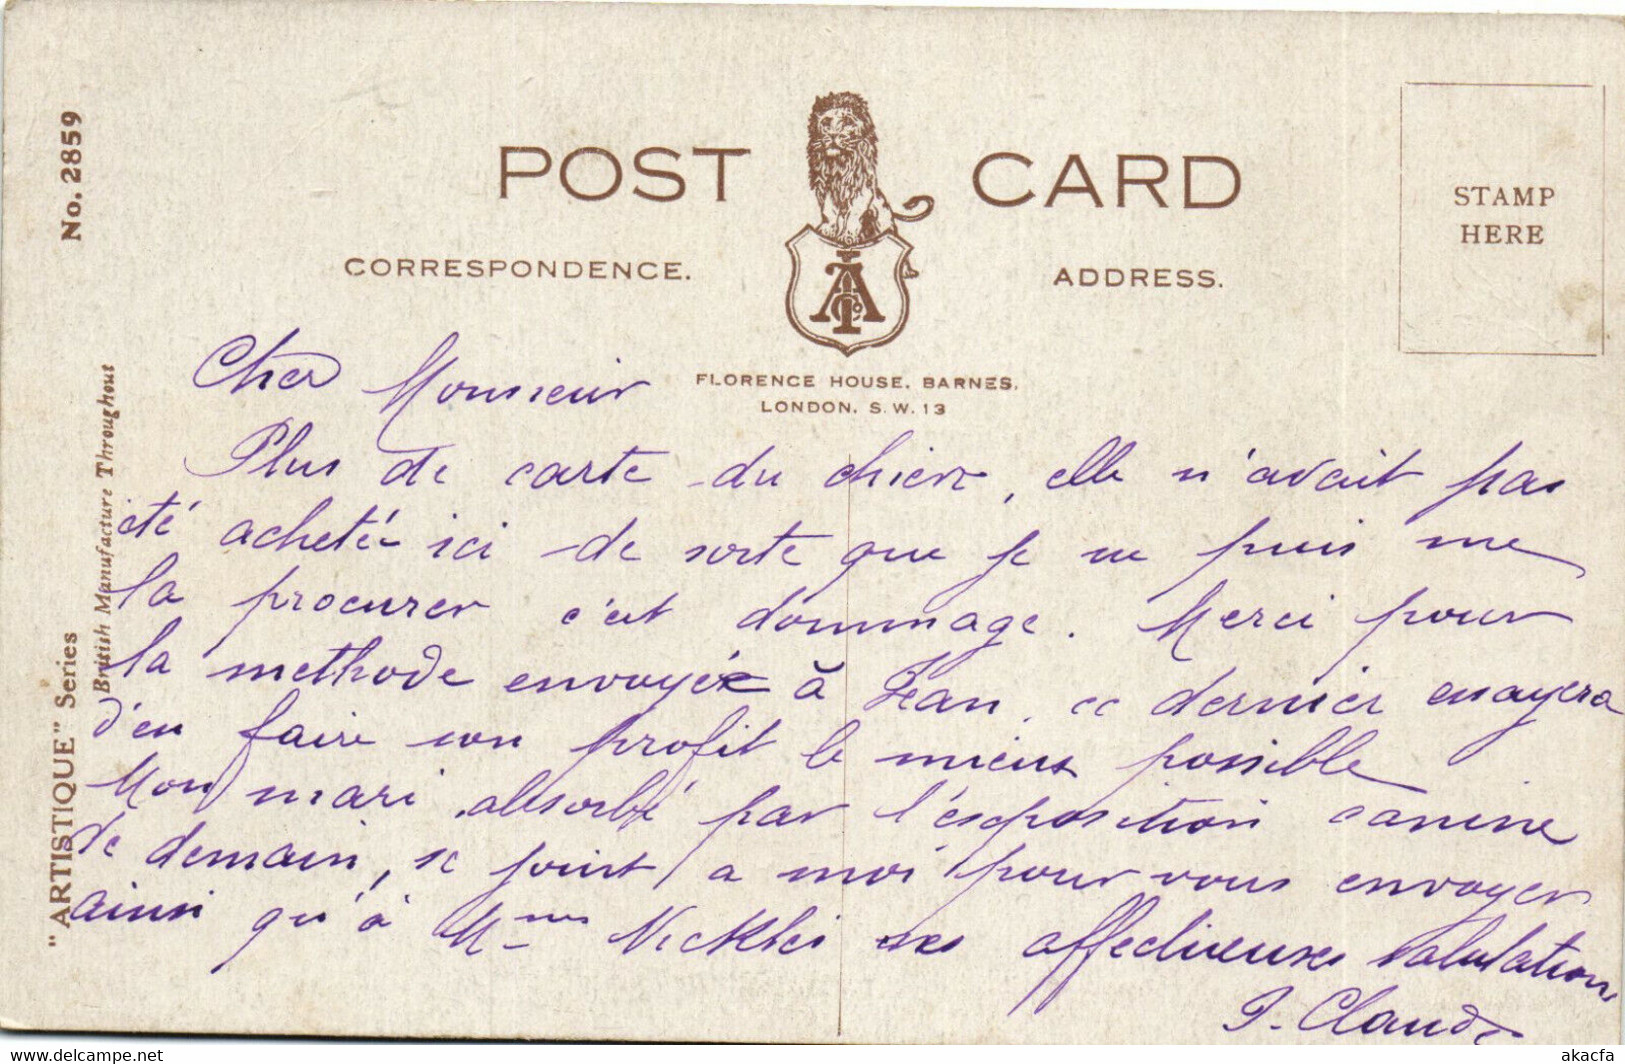 POST CARD
CORRESPONDENCE.
ADDRESS.
STAMP
HERE
IA Co
FLORENCE HOUSE. BARNES.
LONDON. S.W. 13
No. 2859
British Manufacture Throughout
"ARTISTIQUE" Series
Cher Monsieur
Plus de carte du chien, elle n'avait pas
été acheté ici de sorte que je ne puis me
la procurer c'est dommage. Merci pour
la methode envoyée à Jean, ce dernier essayera
d'en faire son profit le mieux possible
Mon mari absorbé par l'exposition canine
de demain, se joint a moi pour vous envoyer
ainsi qu'à Mme ses affectueuses salutations
J. Claude
delcampe.net
akacfa